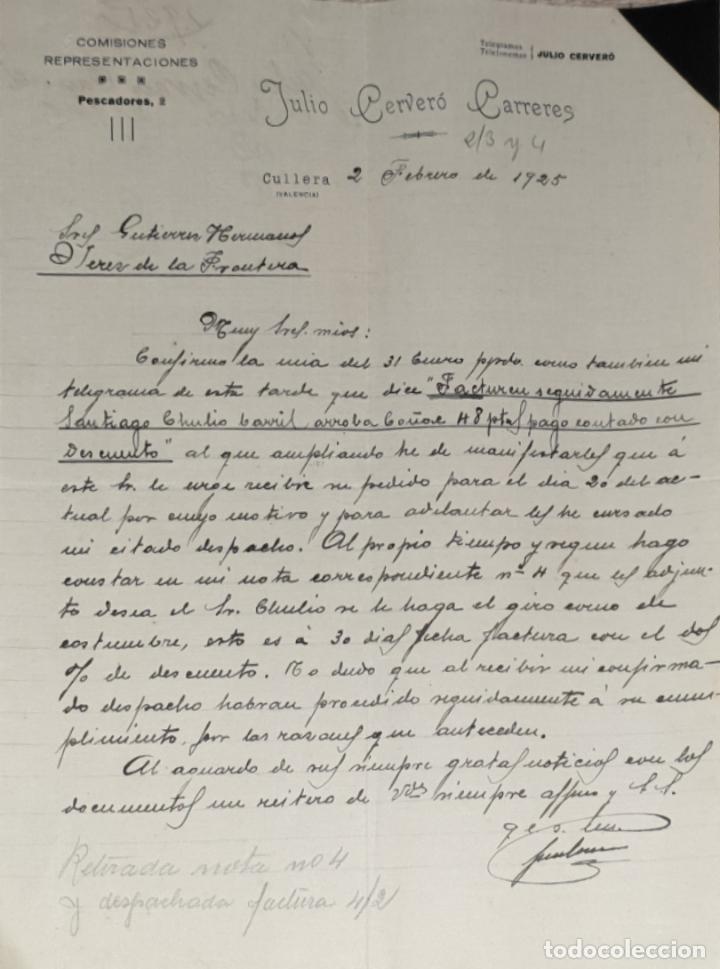 COMISIONES
REPRESENTACIONES
Pescadores, 2
Telegramas
Telefonemas
JULIO CERVERÓ
Julio Cerveró Carreres
2/3 y 4
Cullera 2 Febrero de 1925
(VALENCIA)
Sres Gutierrez Hermanos
Jerez de la Frontera
Muy Sres. mios:
Confirmo la mia del 31 Enero ppdo. como tambien mi
telegrama de esta tarde que dice "Facturen seguidamente
Santiago Chulio barril arroba Coñac 48 ptas pago contado con
Descuento" al que ampliando he de manifestarles que á
este Sr. le urge recibir su pedido para el dia 20 del ac-
tual por cuyo motivo y para adelantar les he cursado
mi citado despacho. Al propio tiempo y segun hago
constar en mi nota correspondiente nº 4 que les adjun-
to desea el Sr. Chulio se le haga el giro como de
costumbre, esto es á 30 dias fecha factura con el dos
% de descuento. No dudo que al recibir mi confirma-
do despacho habran procedido seguidamente á su cum-
plimiento, por las razones que anteceden.
Al aguardo de sus siempre gratas noticias con los
documentos me reitero de Vdes siempre affmo y S.S.
q e s. m.
Retirada nota no 4
y despachada factura 4/2
todocoleccion